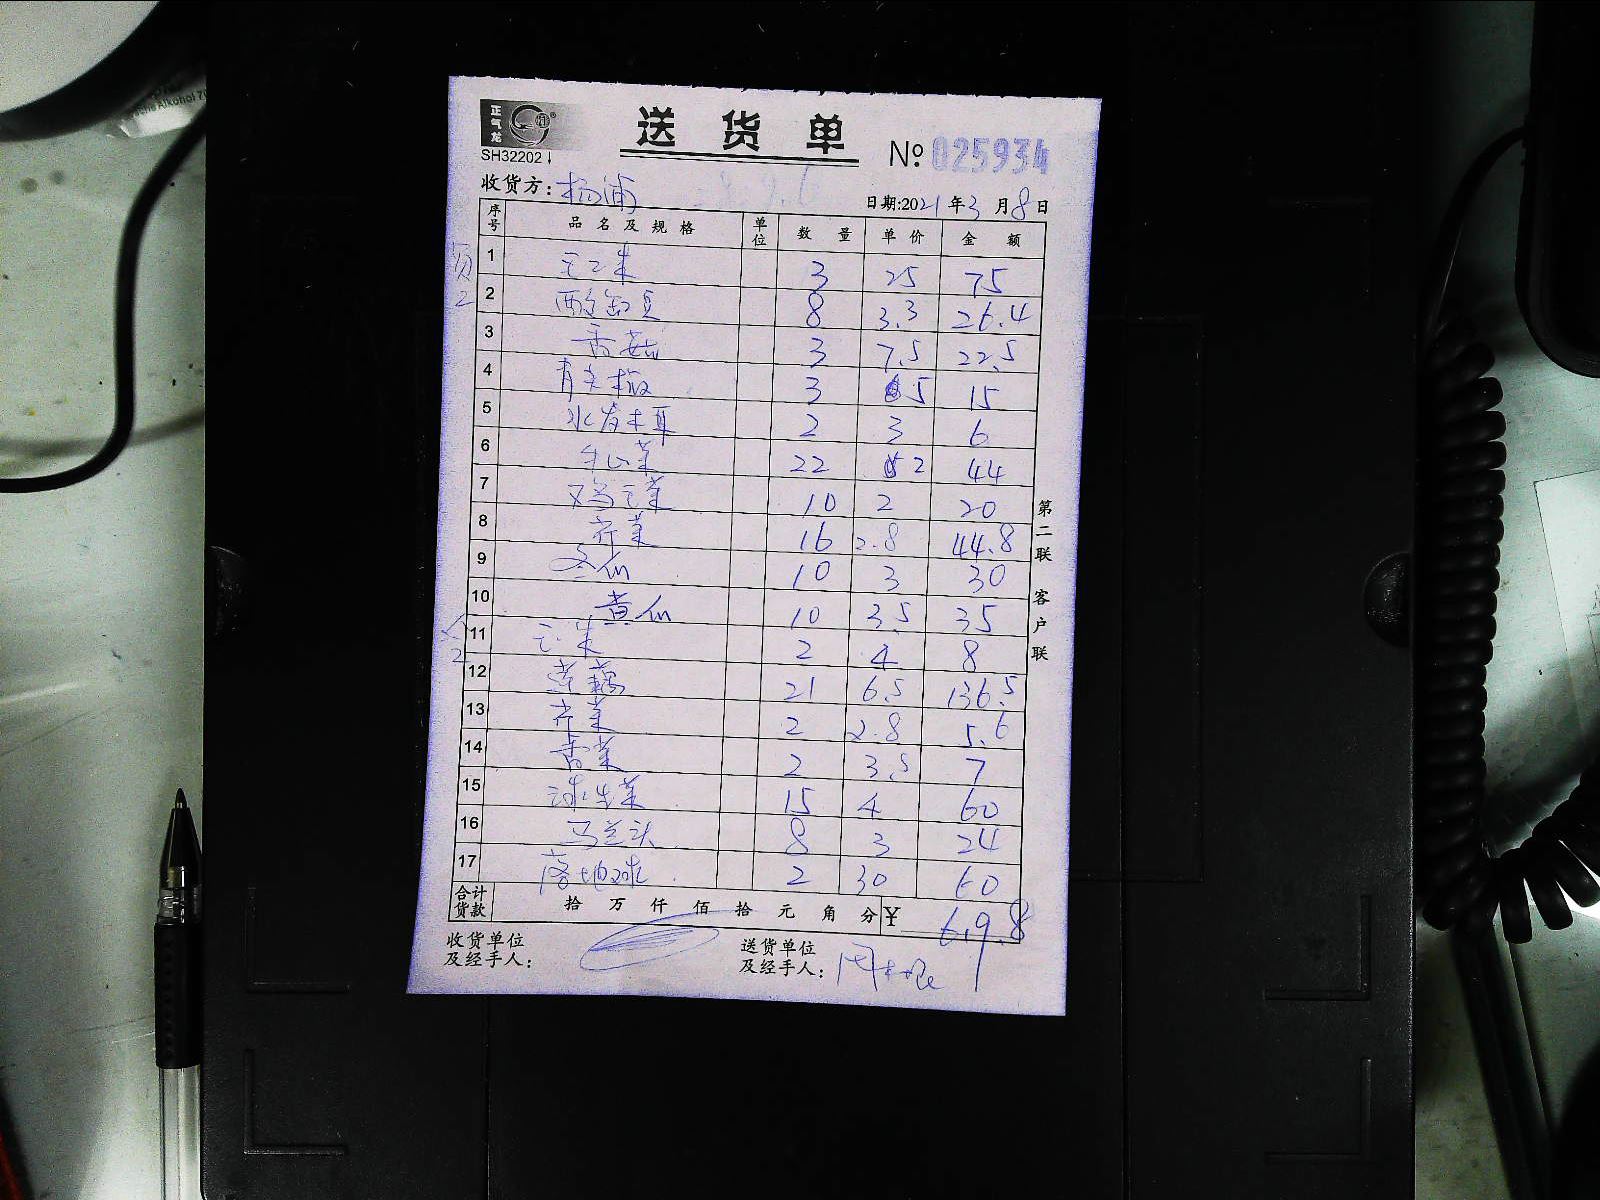 正气龙
SH32202
送 货 单
№ 025934
收货方: 杨浦
日期:2021年3月8日
序号 品名及规格 单位 数量 单价 金额
1 3 25 75
2 酸缸豆 8 3.3 26.4
3 香菇 3 7.5 22.5
4 3 5 15
5 水发木耳 2 3 6
6 22 2 44
7 鸡毛菜 10 2 20
8 芹菜 16 2.8 44.8
9 冬瓜 10 3 30
10 黄瓜 10 3.5 35
11 2 4 8
12 莲藕 21 6.5 136.5
13 芹菜 2 2.8 5.6
14 香菜 2 3.5 7
15 球生菜 15 4 60
16 马兰头 8 3 24
17 2 30 60
合计货款 拾 万 仟 佰 拾 元 角 分 ¥ 619.8
收货单位及经手人:
送货单位及经手人:
第二联 客户联